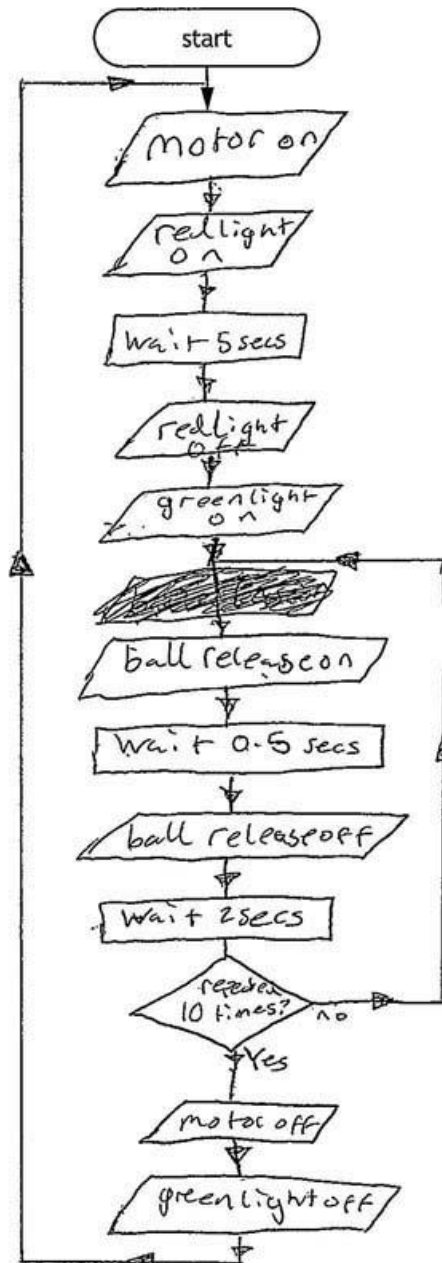 start
motor on
redlight
on
wait 5 secs
redlight
off
greenlight
on
ball release on
wait 0.5 secs
ball release off
wait 2 secs
10 times?
no
Yes
motor off
greenlight off